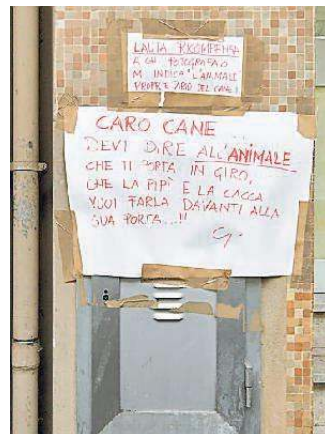 LAUTA RICOMPENSA
A CHI FOTOGRAFA O
M INDICA L'ANIMALE
PROPRIETARIO DEL CANE!
CARO CANE
DEVI DIRE ALL'ANIMALE
CHE TI PORTA IN GIRO,
CHE LA PIPÌ E LA CACCA
VUOI FARLA DAVANTI ALLA
SUA PORTA...!!